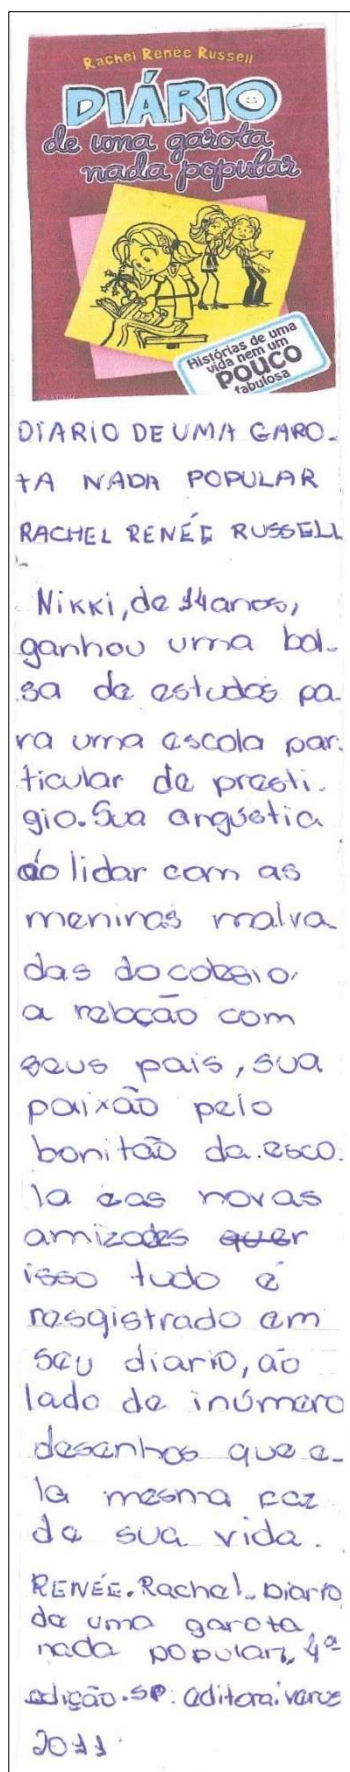 Rachel Renée Russell
DIÁRIO
de uma garota
nada popular
Histórias de uma
vida nem um
POUCO
fabulosa
DIARIO DE UMA GARO-
TA NADA POPULAR
RACHEL RENÉE RUSSELL
Nikki, de 14 anos,
ganhou uma bol-
sa de estudos pa-
ra uma escola par-
ticular de presti-
gio. Sua angústia
ao lidar com as
meninas malva
das do colégio,
a relação com
seus pais, sua
paixão pelo
bonitão da esco-
la e as novas
amizades quer
isso tudo é
resgistrado em
seu diario, ao
lado de inúmero
desenhos que e-
la mesma faz
de sua vida.
RENÉE. Rachel. Diario
de uma garota
nada popular, 4ª
edição. SP: editora: verus
2011.